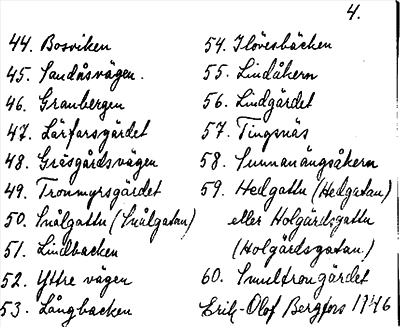 4.
44. Bosviken
45. Sandåsvägen.
46. Granbergen
47. Lärfarsgärdet
48. Gräsgårdsvägen
49. Tronmyrsgärdet
50. Snålgattu (Snålgatan)
51. Lindbacken
52. Yttre vägen
53. Långbacken
54. Ilövesbäcken
55. Lindåkern
56. Lindgärdet
57. Tingsnäs
58. Sunnanängsåkern
59. Hedgattu (Hedgatan)
eller Holgärdsgattu
(Holgärdsgatan.)
60. Smultrongärdet
Erik-Olof Bergfors 1946